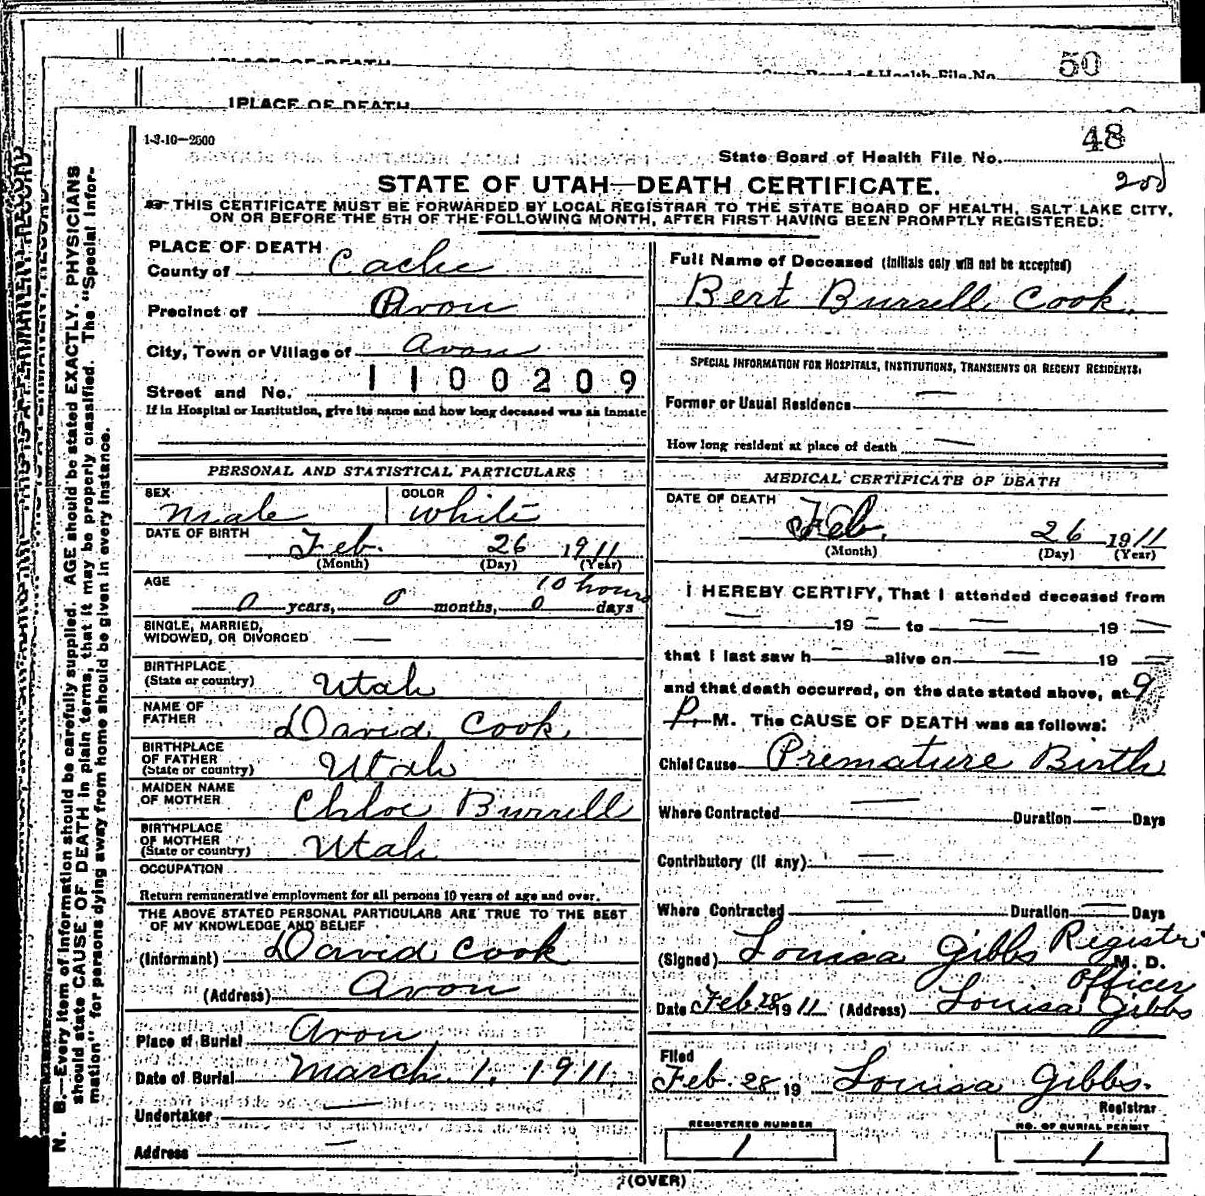 50
PLACE OF DEATH
State Board of Health File No.
1 PLACE OF DEATH
1-3-10—2500
48
State Board of Health File No.
200
STATE OF UTAH—DEATH CERTIFICATE.
THIS CERTIFICATE MUST BE FORWARDED BY LOCAL REGISTRAR TO THE STATE BOARD OF HEALTH, SALT LAKE CITY,
ON OR BEFORE THE 5TH OF THE FOLLOWING MONTH, AFTER FIRST HAVING BEEN PROMPTLY REGISTERED.
N. B.—Every item of information should be carefully supplied. AGE should be stated EXACTLY. PHYSICIANS
should state CAUSE OF DEATH in plain terms, that it may be properly classified. The "Special Infor-
mation" for persons dying away from home should be given in every instance.
PLACE OF DEATH
County of Cache
Precinct of Avon
City, Town or Village of Avon
Street and No. 1100209
If in Hospital or Institution, give its name and how long deceased was an inmate
PERSONAL AND STATISTICAL PARTICULARS
SEX Male COLOR White
DATE OF BIRTH Feb. 26 1911
(Month) (Day) (Year)
AGE 10 hours
0 years, 0 months, 0 days
SINGLE, MARRIED,
WIDOWED, OR DIVORCED —
BIRTHPLACE
(State or country) Utah
NAME OF
FATHER David Cook
BIRTHPLACE
OF FATHER
(State or country) Utah
MAIDEN NAME
OF MOTHER Chloe Burrell
BIRTHPLACE
OF MOTHER
(State or country) Utah
OCCUPATION
Return remunerative employment for all persons 10 years of age and over.
THE ABOVE STATED PERSONAL PARTICULARS ARE TRUE TO THE BEST
OF MY KNOWLEDGE AND BELIEF
(Informant) David Cook
(Address) Avon
Place of Burial Avon
Date of Burial March 1, 1911
Undertaker —
Address —
Full Name of Deceased (Initials only will not be accepted)
Bert Burrell Cook.
SPECIAL INFORMATION FOR HOSPITALS, INSTITUTIONS, TRANSIENTS OR RECENT RESIDENTS.
Former or Usual Residence —
How long resident at place of death —
MEDICAL CERTIFICATE OF DEATH
DATE OF DEATH Feb. 26 1911
(Month) (Day) (Year)
I HEREBY CERTIFY, That I attended deceased from
— 19 — to — 19 —
that I last saw h — alive on — 19 —
and that death occurred, on the date stated above, at 9
P. M. The CAUSE OF DEATH was as follows:
Chief Cause Premature Birth
Where Contracted — Duration — Days
Contributory (if any) —
Where Contracted — Duration — Days
(Signed) Louisa Gibbs Registr M. D.
Officer
Date Feb 28 1911 (Address) Louisa Gibbs
Filed
Feb. 28 19 Louisa Gibbs.
Registrar
REGISTERED NUMBER
1
NO. OF BURIAL PERMIT
1
(OVER)